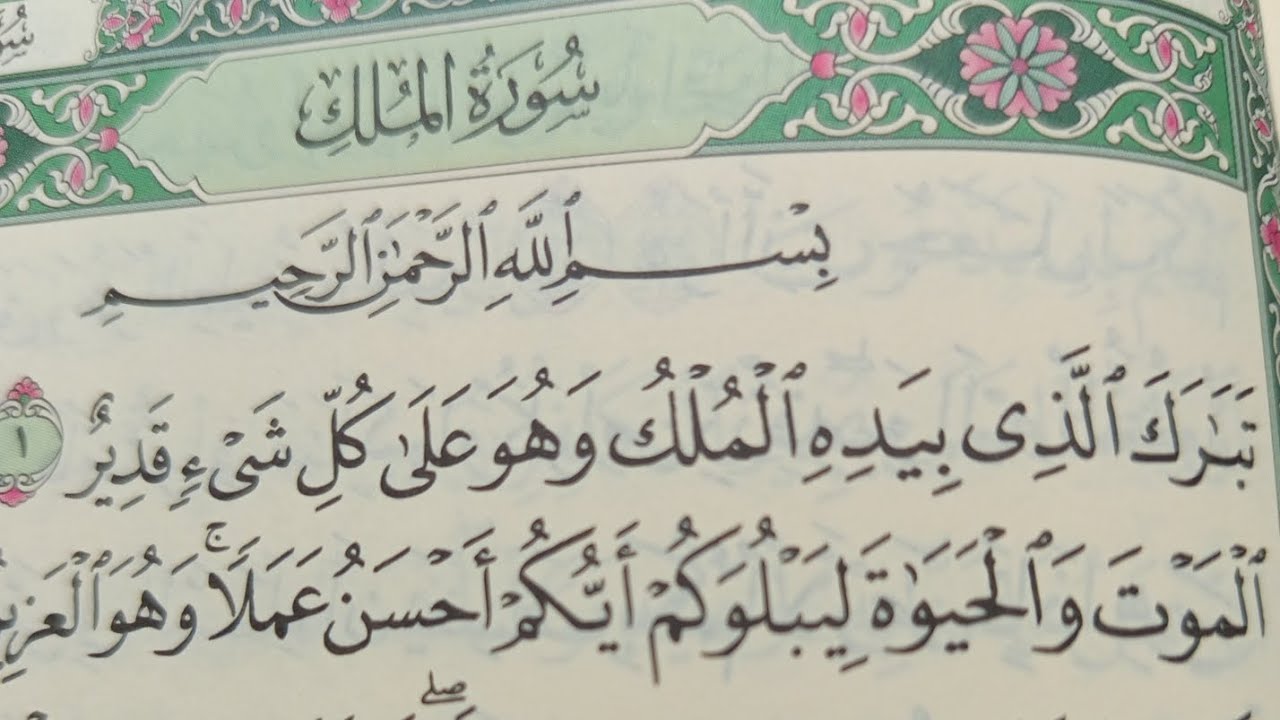 سُورَةُ المُلكِ
بِسْمِ ٱللَّهِ ٱلرَّحْمَٰنِ ٱلرَّحِيمِ
تَبَٰرَكَ ٱلَّذِى بِيَدِهِ ٱلْمُلْكُ وَهُوَ عَلَىٰ كُلِّ شَىْءٍ قَدِيرٌ ١
ٱلْمَوْتَ وَٱلْحَيَوٰةَ لِيَبْلُوَكُمْ أَيُّكُمْ أَحْسَنُ عَمَلًا ۚ وَهُوَ ٱلْعَزِي